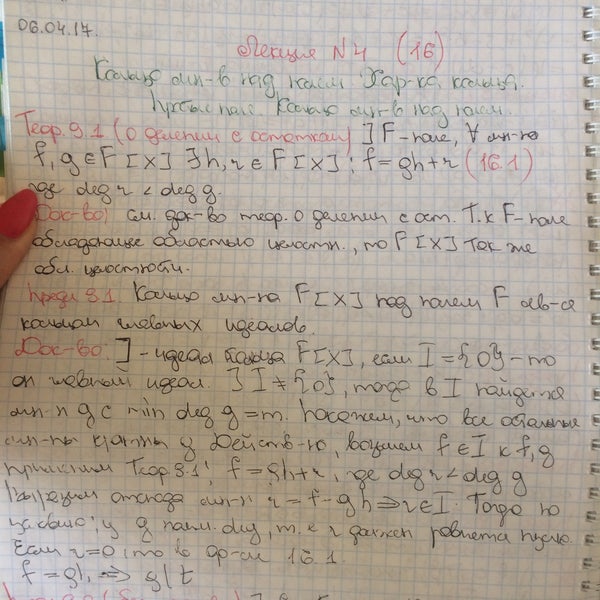 06.04.17.
Лекция N4 (16)
Кольцо мн-в над полем. Хар-ка кольца.
Простые поле. Кольцо мн-в над полем.
Теор. 9.1 (о делении с остатком) ] F-поле, ∀ мн-на
f, g ∈ F[x] ∃ h, r ∈ F[x]: f = gh + r (16.1)
где deg r < deg g.
Док-во: см. док-во теор. о делении с ост. Т.к F-поле
обладающее областью целостн., то F[x] так же
обл. целостности.
Предл 9.1. Кольцо мн-на F[x] над полем F явл-ся
кольцом главных идеалов.
Док-во: ] - идеал кольца F[x], если I = {0} - то
он главный идеал. ] I ≠ {0}, тогда в I найдется
мн-н g с min deg g = m. Покажем, что все остальные
мн-ны кратны g. Действ-но, возьмем f ∈ I к f, g
применим Теор 9.1: f = gh + r, где deg r < deg g
Выразим отсюда мн-н r = f - gh ⇒ r ∈ I. Тогда по
условию: у g наим. deg, т.е r должен равнятся нулю.
Если r = 0, то в ф-ле 16.1.
f = gh ⇒ g | f